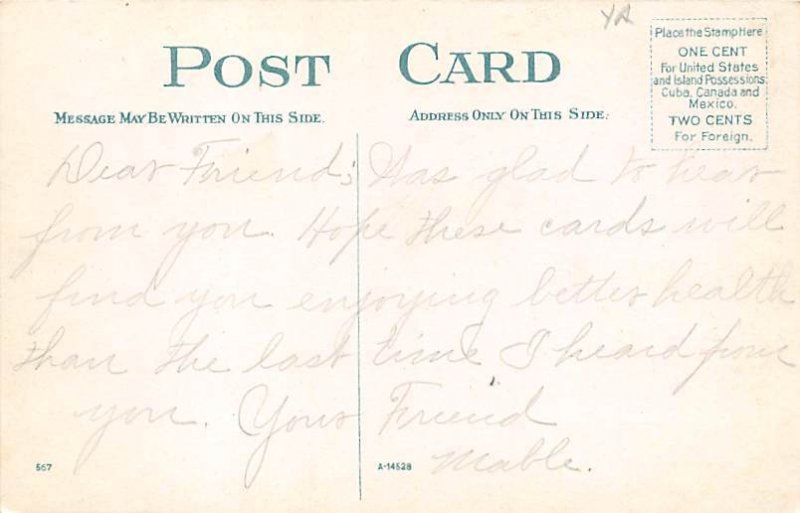 YA
POST CARD
Place the Stamp Here
ONE CENT
For United States
and Island Possessions,
Cuba, Canada and
Mexico.
TWO CENTS
For Foreign.
MESSAGE MAY BE WRITTEN ON THIS SIDE.
ADDRESS ONLY ON THIS SIDE.
Dear Friend; Was glad to hear
from you. Hope these cards will
find you enjoying better health
than the last time I heard from
you. Your Friend
Mable.
567
A-14528